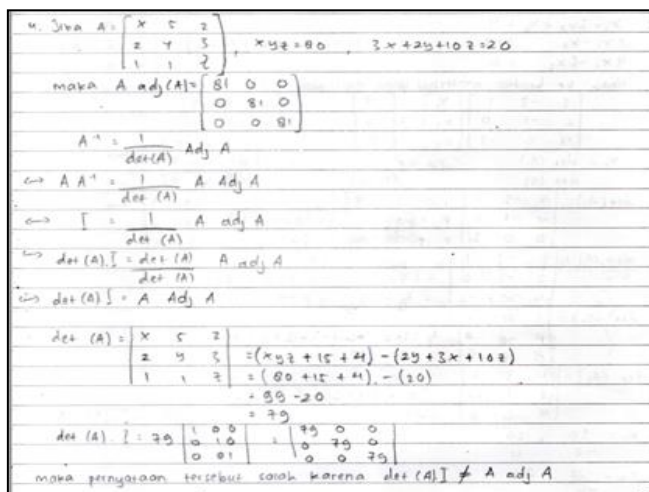 4. Jika A = [ x 5 2
2 y 3 , xyz = 80 , 3x + 2y + 10z = 20
1 1 z ]
maka A adj (A) = [ 81 0 0
0 81 0
0 0 81 ]
A⁻¹ = 1/det(A) Adj A
⟺ A A⁻¹ = 1/det (A) A Adj A
⟺ I = 1/det (A) A adj A
⟺ det (A). I = det (A)/det (A) A adj A
⟺ det (A) I = A Adj A
det (A) = | x 5 2 |
| 2 y 3 | = (xyz + 15 + 4) - (2y + 3x + 10z)
| 1 1 z | = (80 + 15 + 4) - (20)
= 99 - 20
= 79
det (A). I = 79 | 1 0 0 | = | 79 0 0 |
| 0 1 0 | | 0 79 0 |
| 0 0 1 | | 0 0 79 |
maka pernyataan tersebut salah karena det (A) I ≠ A adj A